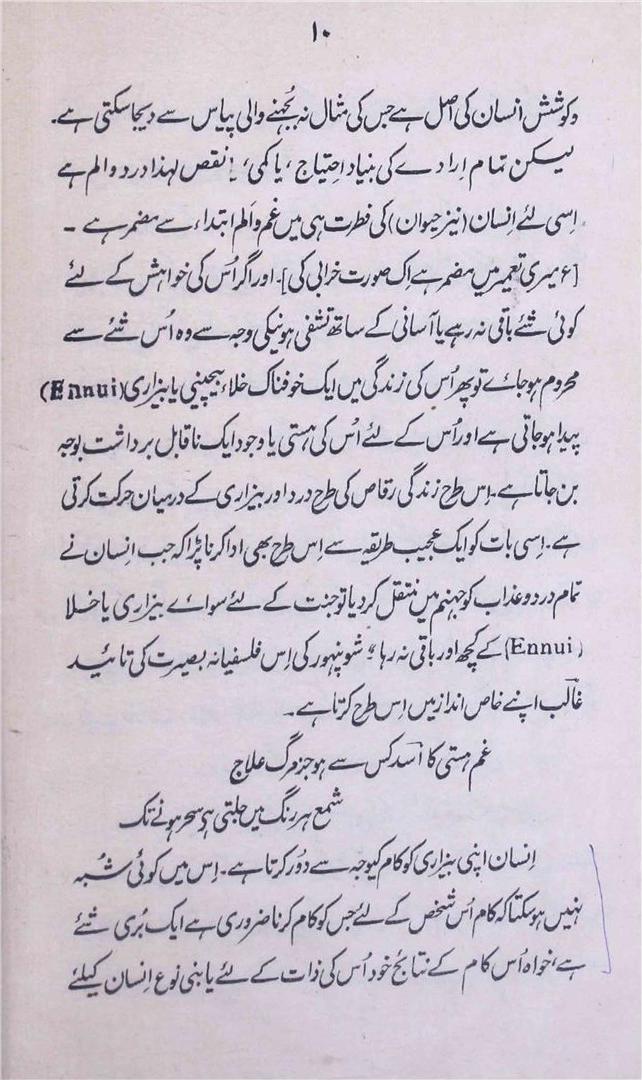 ۱۰
وکوشش انسان کی اصل ہے جس کی مثال نہ بُجہنے والی پیاس سے دیجاسکتی ہے.
لیکن تمام اِرادے کی بنیاد احتیاج ، یا کمی ، یا نقص لہذا درد والم ہے
اِسی لئے اِنسان (نیز حیوان) کی فطرت ہی میں غم والَم ابتداء سے مضمر ہے ۔
[ ع میری تعمیر میں مضمر ہے اک صورت خرابی کی]. اور اگر اُس کی خواہش کے لئے
کوئی شئے باقی نہ رہے یا آسانی کے ساتھ تشفی ہونیکی وجہ سے وہ اُس شئے سے
محروم ہوجائے تو پھر اُس کی زندگی میں ایک خوفناک خلاء بیچینی یا بیزاری (Ennui)
پیدا ہوجاتی ہے اور اُس کے لئے اُس کی ہستی یا وجود ایک ناقابل برداشت بوجہ
بن جاتا ہے۔ اِس طرح زندگی رقاص کی طرح درد اور بیزاری کے درمیان حرکت کرتی
ہے۔ اِسی بات کو ایک عجیب طریقہ سے اِس طرح بھی ادا کرنا پڑا کہ جب اِنسان نے
تمام درد و عذاب کو جہنم میں منتقل کردیا تو جنت کے لئے سواے بیزاری یا خلا
(Ennui) کے کچھ اور باقی نہ رہا"۔ شوپنہور کی اِس فلسفیانہ بصیرت کی تائید
غالؔب اپنے خاص انداز میں اِس طرح کرتا ہے۔
غم ہستی کا اسؔد کس سے ہو جز مرگ علاج
شمع ہر رنگ میں جلتی ہو سحر ہونے تک
اِنسان اپنی بیزاری کو کام کیوجہ سے دُور کرتا ہے۔ اِس میں کوئی شُبہ
نہیں ہوسکتا کہ کام اُس شخص کے لئے جس کو کام کرنا ضروری ہے ایک بُری شئے
ہے، خواہ اُس کام کے نتائج خود اُس کی ذات کے لئے یا بنی نوع اِنسان کیلئے